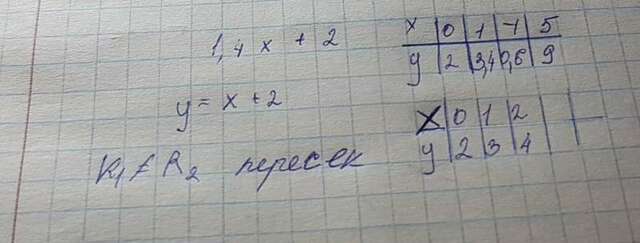 1,4 x + 2
x 0 1 -1 5
y 2 3,4 0,6 9
y = x + 2
X 0 1 2
y 2 3 4
K₁ ≠ K₂ пересек